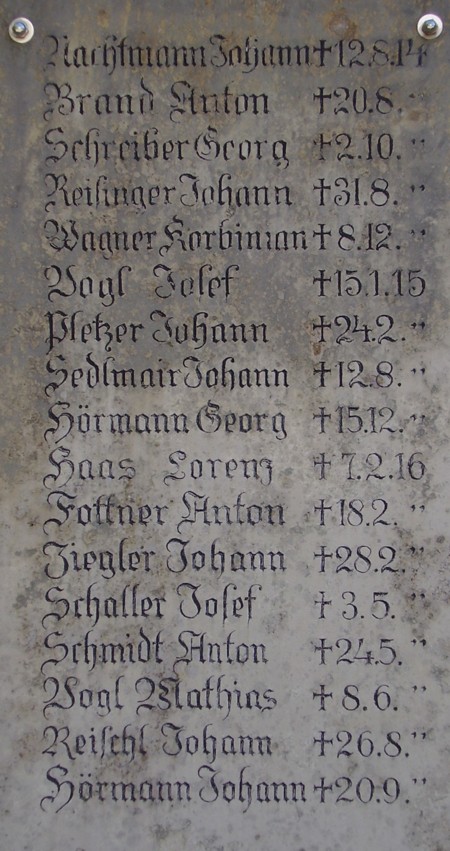 Nachtmann Johann †12.8.14
Brand Anton †20.8. "
Schreiber Georg †2.10. "
Reisinger Johann †31.8. "
Wagner Korbinian †8.12. "
Vogl Josef †15.1.15
Pletzer Johann †24.2. "
Sedlmair Johann †12.8. "
Hörmann Georg †15.12. "
Haas Lorenz †7.2.16
Fottner Anton †18.2. "
Ziegler Johann †28.2. "
Schaller Josef †3.5. "
Schmidt Anton †24.5. "
Vogl Mathias †8.6. "
Reischl Johann †26.8. "
Hörmann Johann †20.9. "